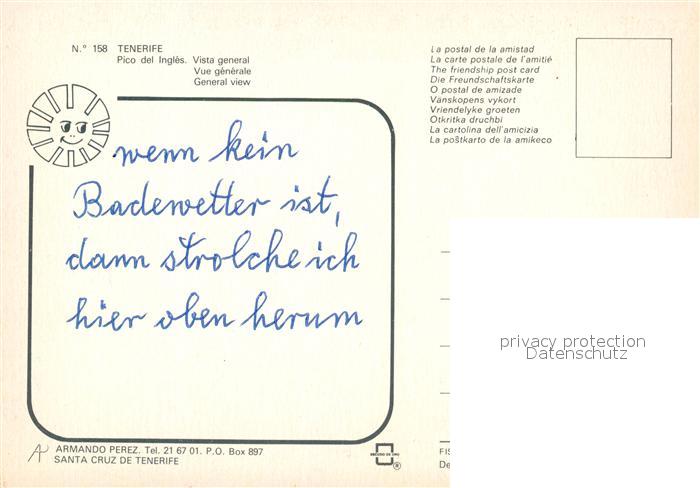 N.° 158 TENERIFE
Pico del Inglés. Vista general
Vue générale
General view
La postal de la amistad
La carte postale de l'amitié
The friendship post card
Die Freundschaftskarte
O postal de amizade
Vänskopens vykort
Vriendelyke groeten
Otkritka druchbi
La cartolina dell'amicizia
La poŝtkarto de la amikeco
wenn kein
Badewetter ist,
dann strolche ich
hier oben herum
privacy protection
Datenschutz
ARMANDO PEREZ. Tel. 21 67 01. P.O. Box 897
SANTA CRUZ DE TENERIFE
ESCUDO DE ORO
®
FIS
De